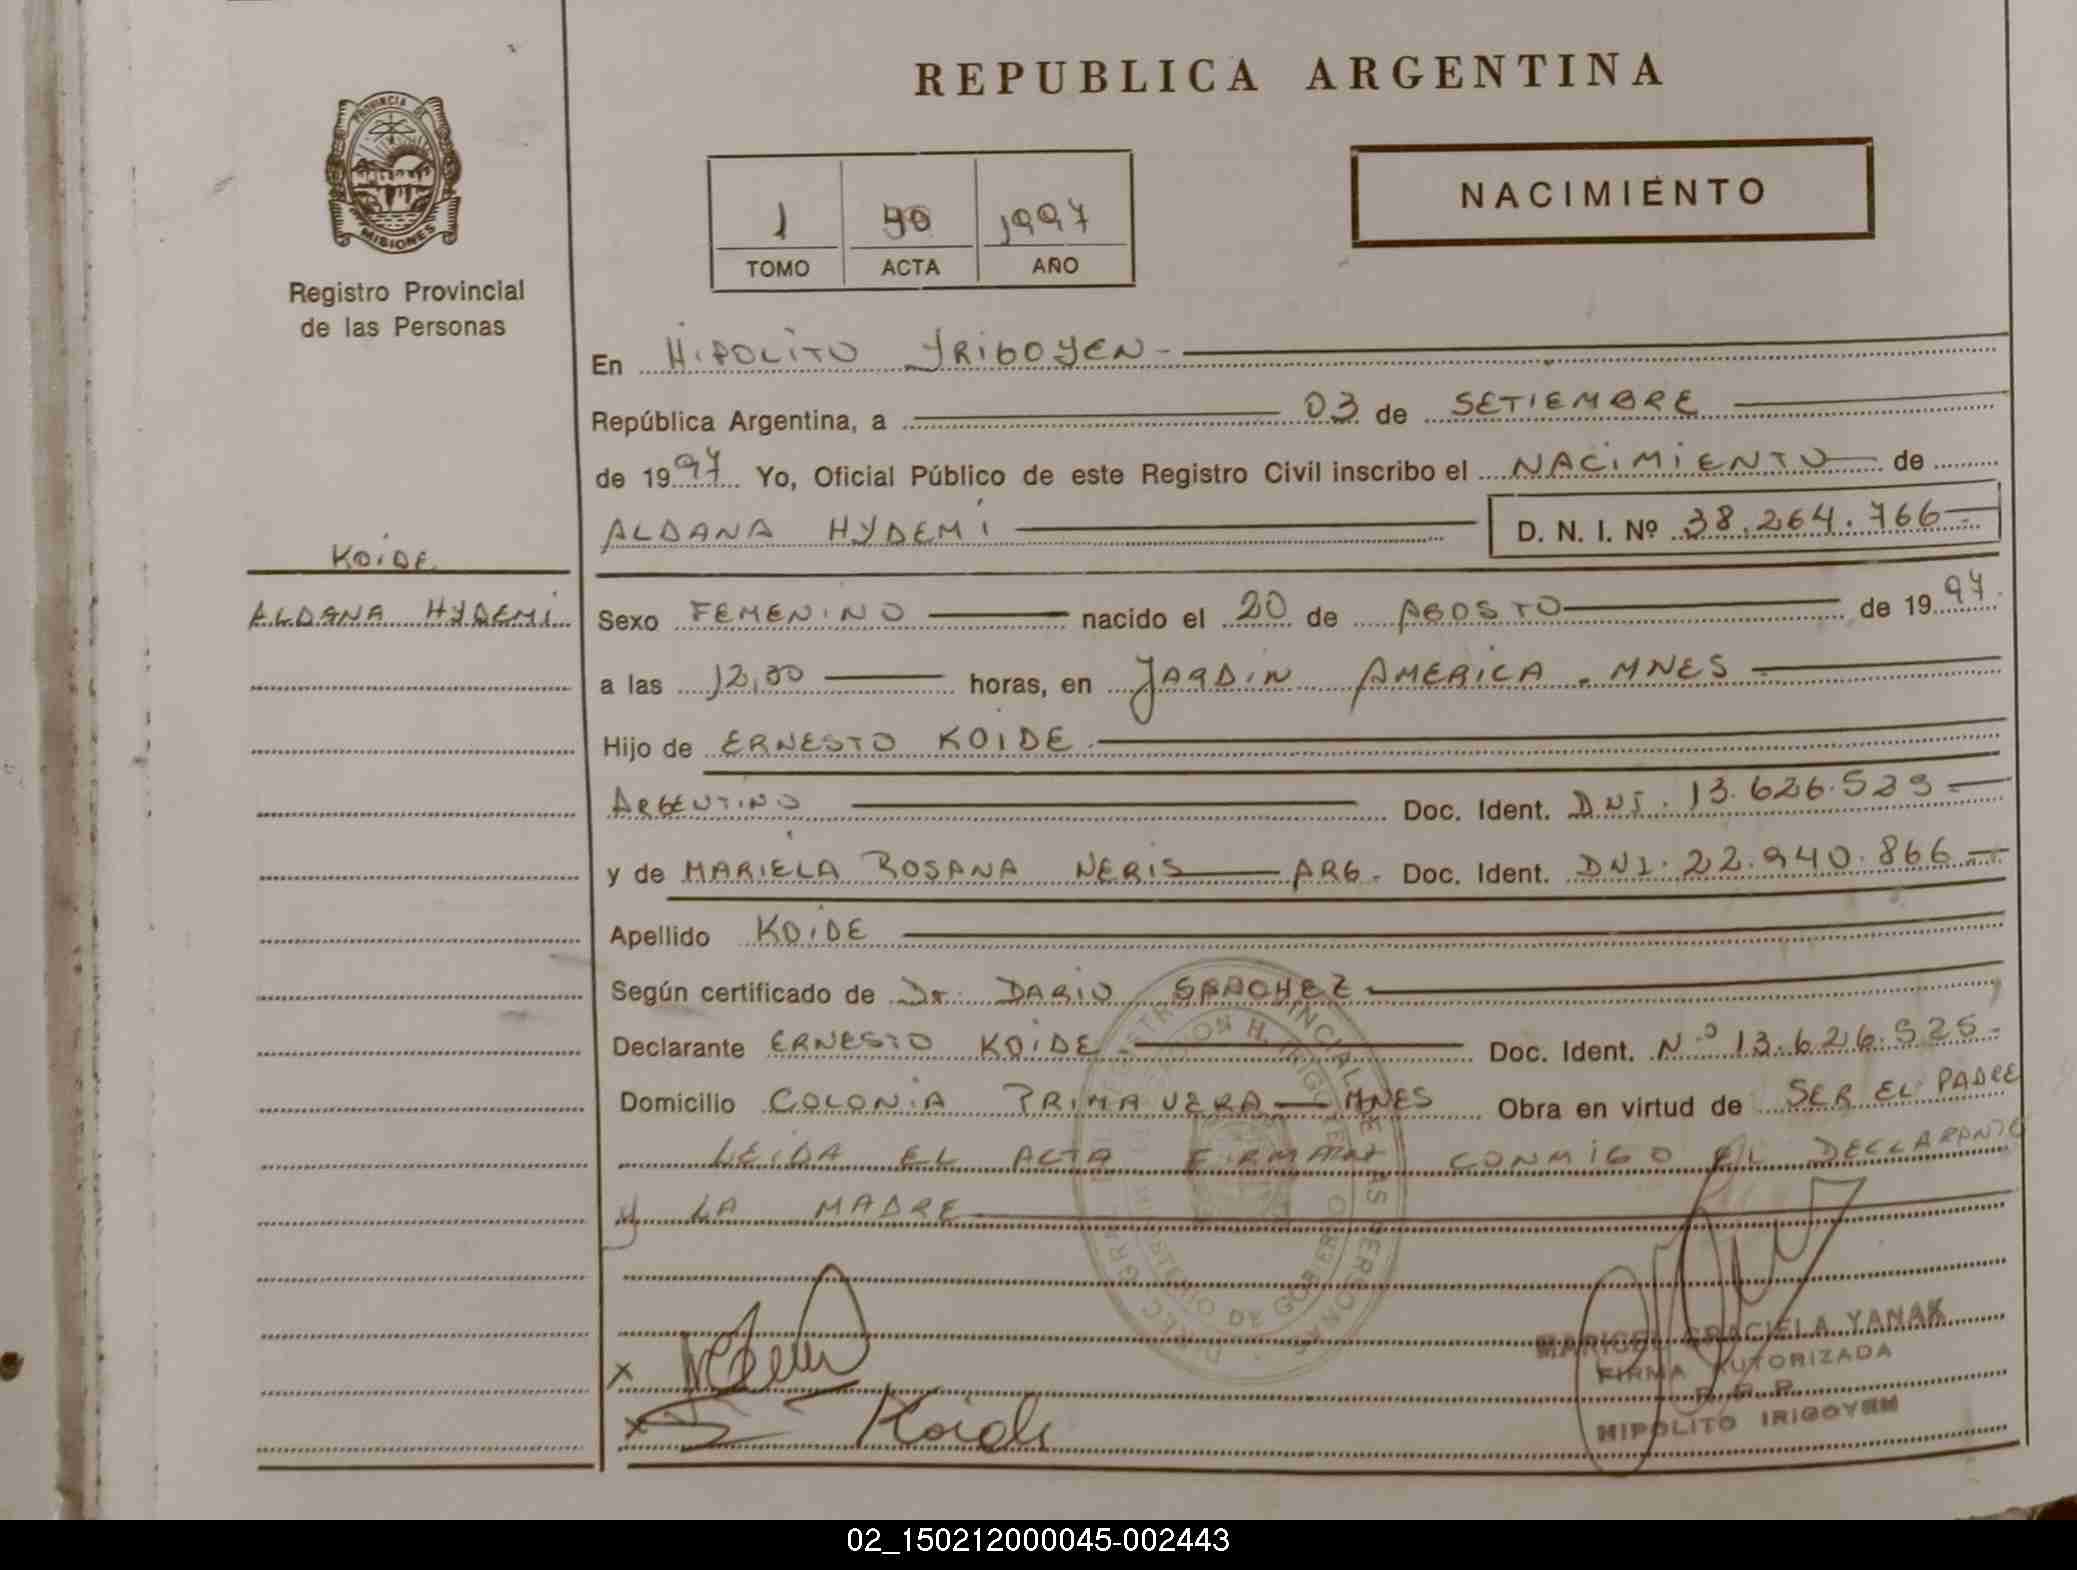 REPUBLICA ARGENTINA
PROVINCIA DE
MISIONES
Registro Provincial
de las Personas
NACIMIENTO
1 90 1997
TOMO ACTA AÑO
En HIPOLITO YRIGOYEN
República Argentina, a 03 de SETIEMBRE
de 1997 Yo, Oficial Público de este Registro Civil inscribo el NACIMIENTO de
ALDANA HYDEMI D. N. I. Nº 38.264.766
KOIDE
ALDANA HYDEMI
Sexo FEMENINO nacido el 20 de AGOSTO de 1997
a las 12,00 horas, en JARDIN AMERICA. MNES
Hijo de ERNESTO KOIDE
ARGENTINO Doc. Ident. DNI. 13.626.529
y de MARIELA ROSANA NERIS ARG. Doc. Ident. DNI. 22.940.866
Apellido KOIDE
Según certificado de Dr. DARIO SANCHEZ
Declarante ERNESTO KOIDE Doc. Ident. N.º 13.626.525
Domicilio COLONIA PRIMAVERA MNES Obra en virtud de SER EL PADRE
LEIDA EL ACTA FIRMAN CONMIGO EL DECLARANTE
Y LA MADRE
Koide
MARICEL GRACIELA YANAK
FIRMA AUTORIZADA
HIPOLITO IRIGOYEN
02_150212000045-002443